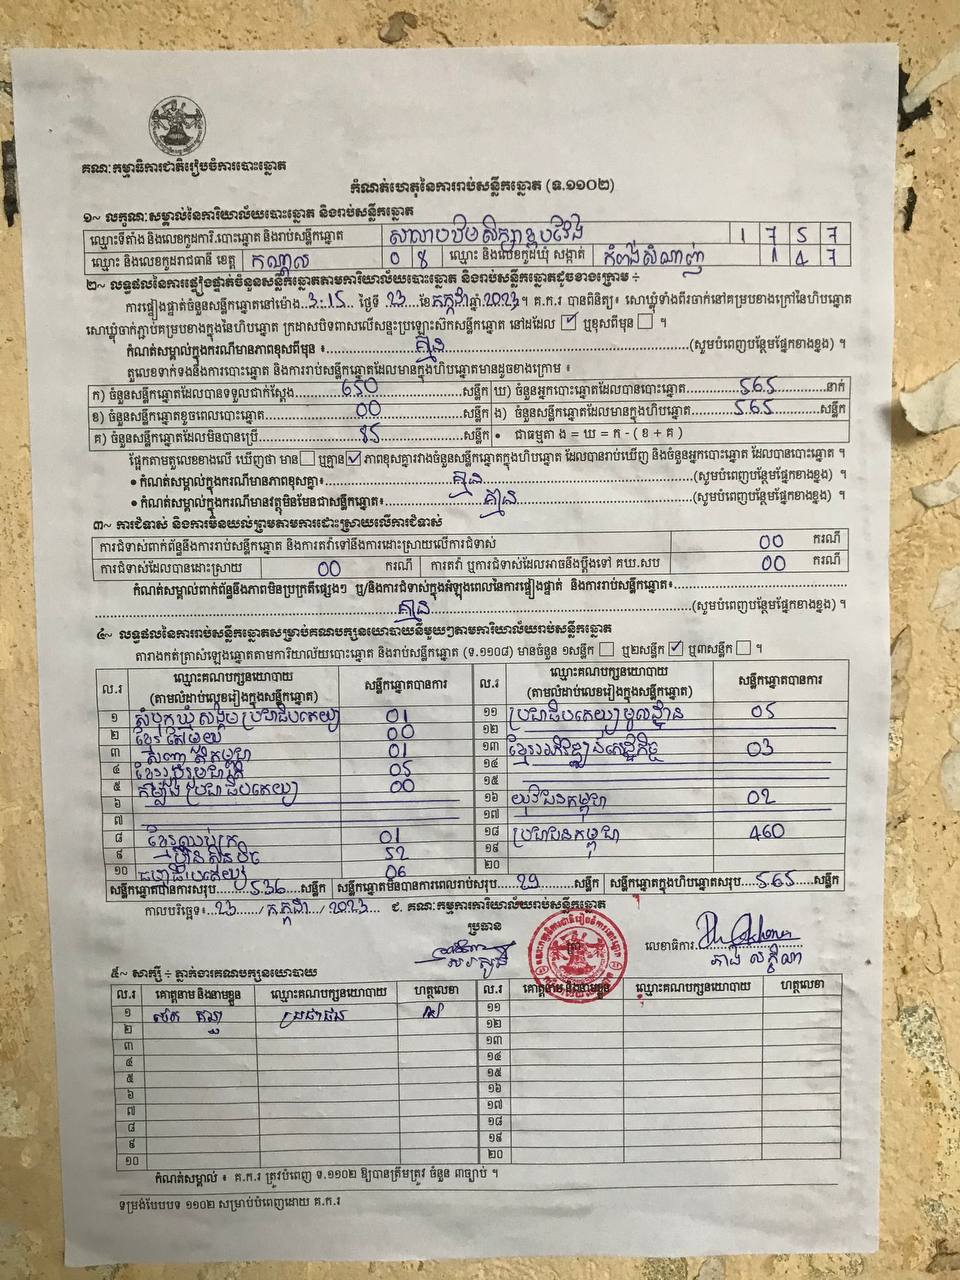 គណៈកម្មាធិការជាតិរៀបចំការបោះឆ្នោត
កំណត់ហេតុនៃការរាប់សន្លឹកឆ្នោត (ទ.១១០២)
១~ លក្ខណៈសម្គាល់នៃការិយាល័យបោះឆ្នោត និងរាប់សន្លឹកឆ្នោត
ឈ្មោះទីតាំង និងលេខកូដការិ.បោះឆ្នោត និងរាប់សន្លឹកឆ្នោត 1 7 5 7
ឈ្មោះ និងលេខកូដរាជធានី ខេត្ត កណ្តាល 0 8 ឈ្មោះ និងលេខកូដឃុំ សង្កាត់ កំពង់សំណាញ់ 1 4 7
២~ លទ្ធផលនៃការផ្ទៀងផ្ទាត់ចំនួនសន្លឹកឆ្នោតតាមការិយាល័យបោះឆ្នោត និងរាប់សន្លឹកឆ្នោតដូចខាងក្រោម ÷
ការផ្ទៀងផ្ទាត់ចំនួនសន្លឹកឆ្នោតនៅម៉ោង 3:15 ថ្ងៃទី 23 ខែ កក្កដា ឆ្នាំ 2023 ។ គ.ក.រ បានពិនិត្យ៖ សោឃ្លុំទាំងពីរចាក់នៅគម្របខាងក្រៅនៃហិបឆ្នោត
សោឃ្លុំចាក់ភ្ជាប់គម្របខាងក្នុងនៃហិបឆ្នោត ក្រដាសបិទពាសលើសន្ទះប្រឡោះស៊កសន្លឹកឆ្នោត នៅដដែល ☑ ឬខុសពីមុន ☐ ។
កំណត់សម្គាល់ក្នុងករណីមានភាពខុសពីមុន ៖ គ្មាន (សូមបំពេញបន្ថែមផ្នែកខាងខ្នង) ។
តួលេខទាក់ទងនឹងការបោះឆ្នោត និងការរាប់សន្លឹកឆ្នោតដែលមានក្នុងហិបឆ្នោតមានដូចខាងក្រោម ៖
ក) ចំនួនសន្លឹកឆ្នោតដែលបានទទួលជាក់ស្តែង 650 សន្លឹក ឃ) ចំនួនអ្នកបោះឆ្នោតដែលបានបោះឆ្នោត 565 នាក់
ខ) ចំនួនសន្លឹកឆ្នោតខូចពេលបោះឆ្នោត 00 សន្លឹក ង) ចំនួនសន្លឹកឆ្នោតដែលមានក្នុងហិបឆ្នោត 565 សន្លឹក
គ) ចំនួនសន្លឹកឆ្នោតដែលមិនបានប្រើ 85 សន្លឹក • ជាធម្មតា ង = ឃ = ក - ( ខ + គ )
ផ្អែកតាមតួលេខខាងលើ ឃើញថា មាន ☐ ឬគ្មាន ☑ ភាពខុសគ្នារវាងចំនួនសន្លឹកឆ្នោតក្នុងហិបឆ្នោត ដែលបានរាប់ឃើញ និងចំនួនអ្នកបោះឆ្នោត ដែលបានបោះឆ្នោត ។
• កំណត់សម្គាល់ក្នុងករណីមានភាពខុសគ្នា៖ គ្មាន (សូមបំពេញបន្ថែមផ្នែកខាងខ្នង) ។
• កំណត់សម្គាល់ក្នុងករណីមានវត្ថុមិនមែនជាសន្លឹកឆ្នោត៖ គ្មាន (សូមបំពេញបន្ថែមផ្នែកខាងខ្នង) ។
៣~ ការជំទាស់ និងការមិនយល់ព្រមតាមការដោះស្រាយលើការជំទាស់
ការជំទាស់ពាក់ព័ន្ធនឹងការរាប់សន្លឹកឆ្នោត និងការតវ៉ាទៅនឹងការដោះស្រាយលើការជំទាស់ 00 ករណី
ការជំទាស់ដែលបានដោះស្រាយ 00 ករណី ការតវ៉ា ឬការជំទាស់ដែលអាចនឹងប្តឹងទៅ គឃ.សប 00 ករណី
កំណត់សម្គាល់ពាក់ព័ន្ធនឹងភាពមិនប្រក្រតីផ្សេងៗ ឬ/និងការជំទាស់ក្នុងអំឡុងពេលនៃការផ្ទៀងផ្ទាត់ និងការរាប់សន្លឹកឆ្នោត៖
គ្មាន (សូមបំពេញបន្ថែមផ្នែកខាងខ្នង) ។
៤~ លទ្ធផលនៃការរាប់សន្លឹកឆ្នោតសម្រាប់គណបក្សនយោបាយនីមួយៗតាមការិយាល័យរាប់សន្លឹកឆ្នោត
តារាងកត់ត្រាសំឡេងឆ្នោតតាមការិយាល័យបោះឆ្នោត និងរាប់សន្លឹកឆ្នោត (ទ.១១០៨) មានចំនួន ១សន្លឹក ☐ ឬ២សន្លឹក ☑ ឬ៣សន្លឹក ☐ ។
ល.រ ឈ្មោះគណបក្សនយោបាយ (តាមលំដាប់លេខរៀងក្នុងសន្លឹកឆ្នោត) សន្លឹកឆ្នោតបានការ ល.រ ឈ្មោះគណបក្សនយោបាយ (តាមលំដាប់លេខរៀងក្នុងសន្លឹកឆ្នោត) សន្លឹកឆ្នោតបានការ
១ សំបុកឃ្មុំសង្គមប្រជាធិបតេយ្យ 01 ១១ ប្រជាធិបតេយ្យមូលដ្ឋាន 05
២ ខ្មែរតែមួយ 00 ១២
៣ សញ្ជាតិកម្ពុជា 01 ១៣ ខ្មែរអភិវឌ្ឍន៍សេដ្ឋកិច្ច 03
៤ ខ្មែររួបរួមជាតិ 05 ១៤
៥ កម្លាំងប្រជាធិបតេយ្យ 00 ១៥
៦ ១៦ យុវជនកម្ពុជា 02
៧ ១៧
៨ ខ្មែរឈប់ក្រ 01 ១៨ ប្រជាជនកម្ពុជា 460
៩ ហ្វ៊ុនស៊ិនប៉ិច 52 ១៩
១០ ធម្មាធិបតេយ្យ 06 ២០
សន្លឹកឆ្នោតបានការសរុប 536 សន្លឹក សន្លឹកឆ្នោតមិនបានការពេលរាប់សរុប 29 សន្លឹក សន្លឹកឆ្នោតក្នុងហិបឆ្នោតសរុប 565 សន្លឹក
កាលបរិច្ឆេទ៖ 23 / កក្កដា / 2023 ជ. គណៈកម្មការការិយាល័យរាប់សន្លឹកឆ្នោត
ប្រធាន
លេខាធិការ
៥~ សាក្សី ÷ ភ្នាក់ងារគណបក្សនយោបាយ
ល.រ គោត្តនាម និងនាមខ្លួន ឈ្មោះគណបក្សនយោបាយ ហត្ថលេខា ល.រ គោត្តនាម និងនាមខ្លួន ឈ្មោះគណបក្សនយោបាយ ហត្ថលេខា
១ ប្រជាជន ១១
២ ១២
៣ ១៣
៤ ១៤
៥ ១៥
៦ ១៦
៧ ១៧
៨ ១៨
៩ ១៩
១០ ២០
កំណត់សម្គាល់ ៖ គ.ក.រ ត្រូវបំពេញ ទ.១១០២ ឱ្យបានត្រឹមត្រូវ ចំនួន ៣ច្បាប់ ។
ទម្រង់បែបបទ ១១០២ សម្រាប់បំពេញដោយ គ.ក.រ